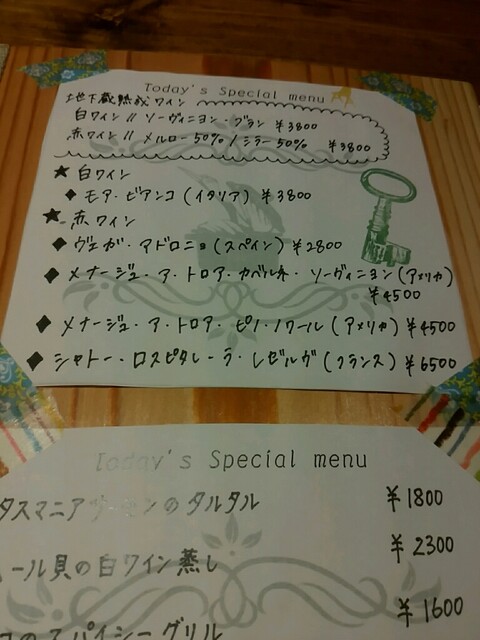 Today's Special menu
地下蔵熟成ワイン
白ワイン // ソーヴィニヨン・ブラン ¥3800
赤ワイン // メルロー 50% / シラー 50% ¥3800
★ 白ワイン
◆ モア・ビアンコ (イタリア) ¥3800
★ 赤ワイン
◆ ヴェガ・アドロニョ (スペイン) ¥2800
◆ メナージュ・ア・トロア・カベルネ・ソーヴィニヨン (アメリカ)
¥4500
◆ メナージュ・ア・トロア・ピノ・ノワール (アメリカ) ¥4500
◆ シャトー・ロスピタレ・ラ・レゼルヴ (フランス) ¥6500
Today's Special menu
タスマニアサーモンのタルタル ¥1800
ール貝の白ワイン蒸し ¥2300
コのスパイシーグリル ¥1600